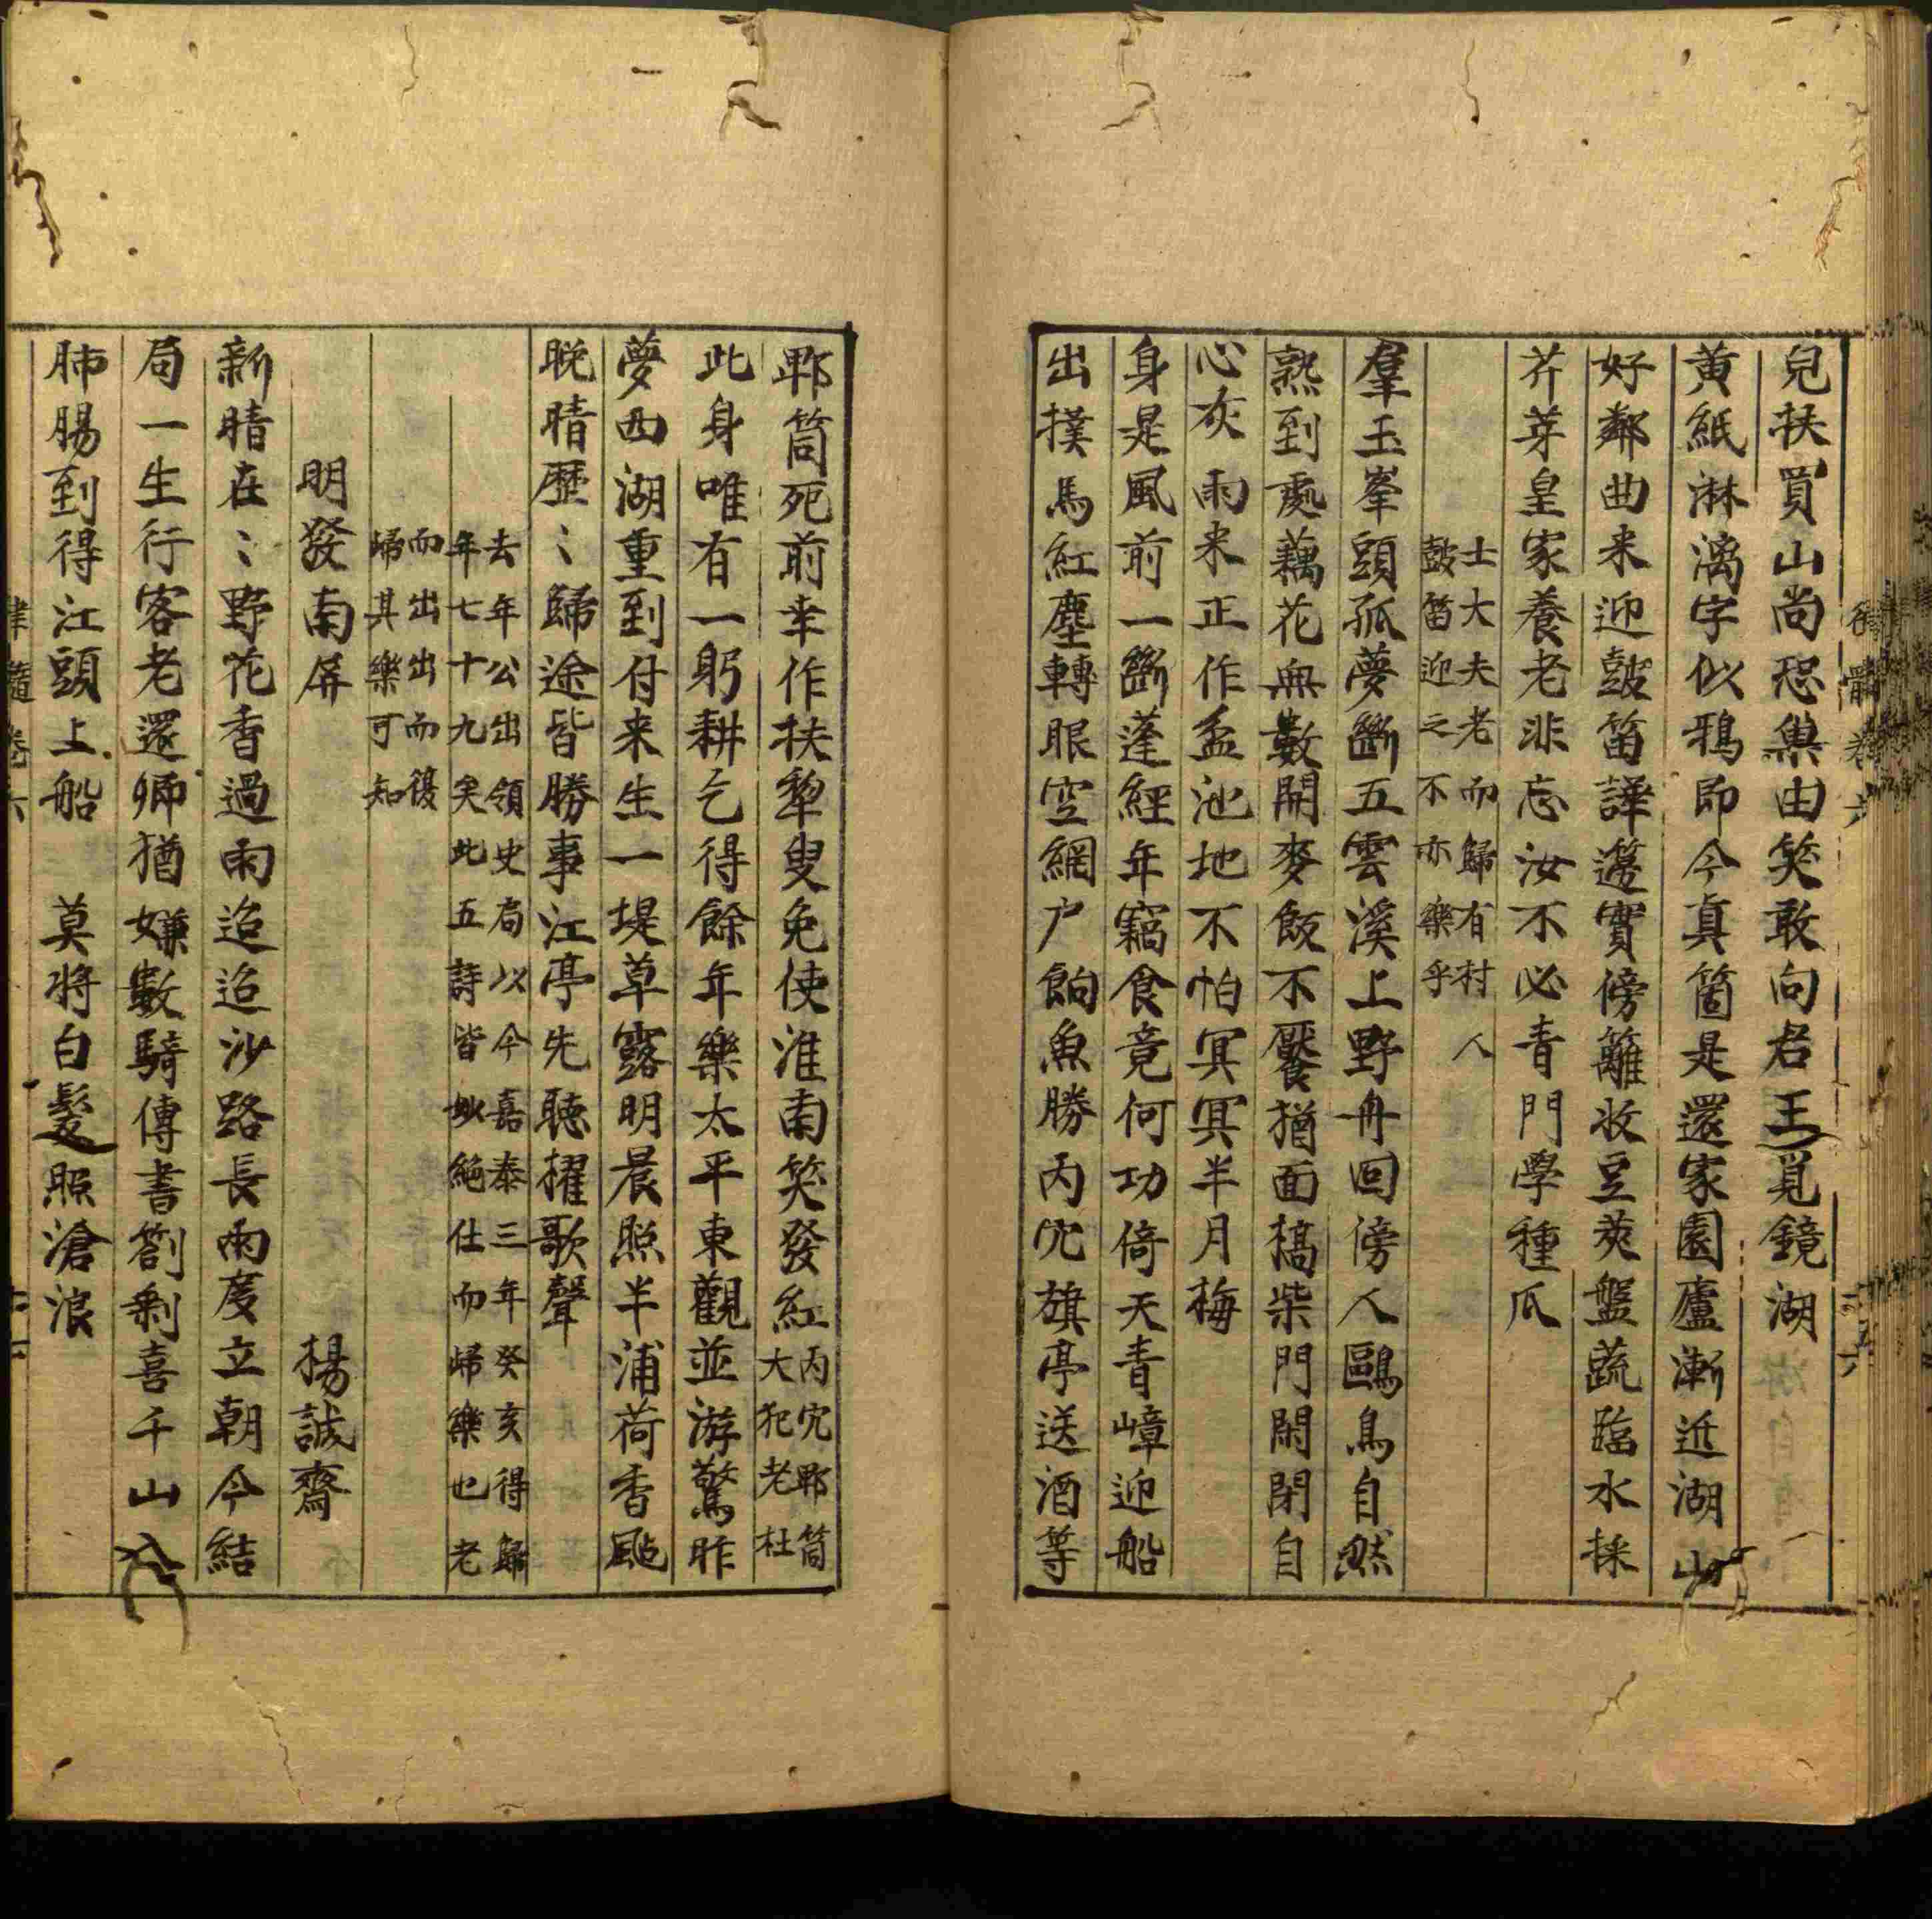 兒扶買山尚恐巢由笑敢向君王覓鏡湖
黃紙淋漓字似鴉即今真箇是還家園廬漸近湖山
好鄰曲来迎鼓笛譁籩實傍籬收豆莢盤蔬臨水採
芥芽皇家養老非忘汝不必青門學種瓜
士大夫老而歸有村人
鼓笛迎之不亦樂乎
羣玉峯頭孤夢斷五雲溪上野舟回傍人鷗鳥自然
熟到處藕花無數開麥飯不饜猶面槁柴門閑閉自
心灰雨来正作盆池地不怕冥冥半月梅
身是風前一斷蓬經年竊食竟何功倚天青嶂迎船
出撲馬紅塵轉眼空網户餉魚勝丙穴旗亭送酒等
郫筒死前幸作扶犁叟免使淮南笑發紅
丙穴郫筒
大犯老杜
此身唯有一躬耕乞得餘年樂太平東觀並游驚昨
夢西湖重到付来生一堤草露明晨照半浦荷香颭
晚晴歷〻歸途皆勝事江亭先聽櫂歌聲
去年公出領史局以今嘉泰三年癸亥得歸
年七十九矣此五詩皆妙絶仕而歸樂也老
而出出而復
歸其樂可知
明發南屏 楊誠齋
新晴在〻野花香過雨迢迢沙路長兩度立朝今結
局一生行客老還鄉猶嫌數騎傳書劄剩喜千山入
肺腸到得江頭上船 莫將白髮照滄浪
律髓卷六